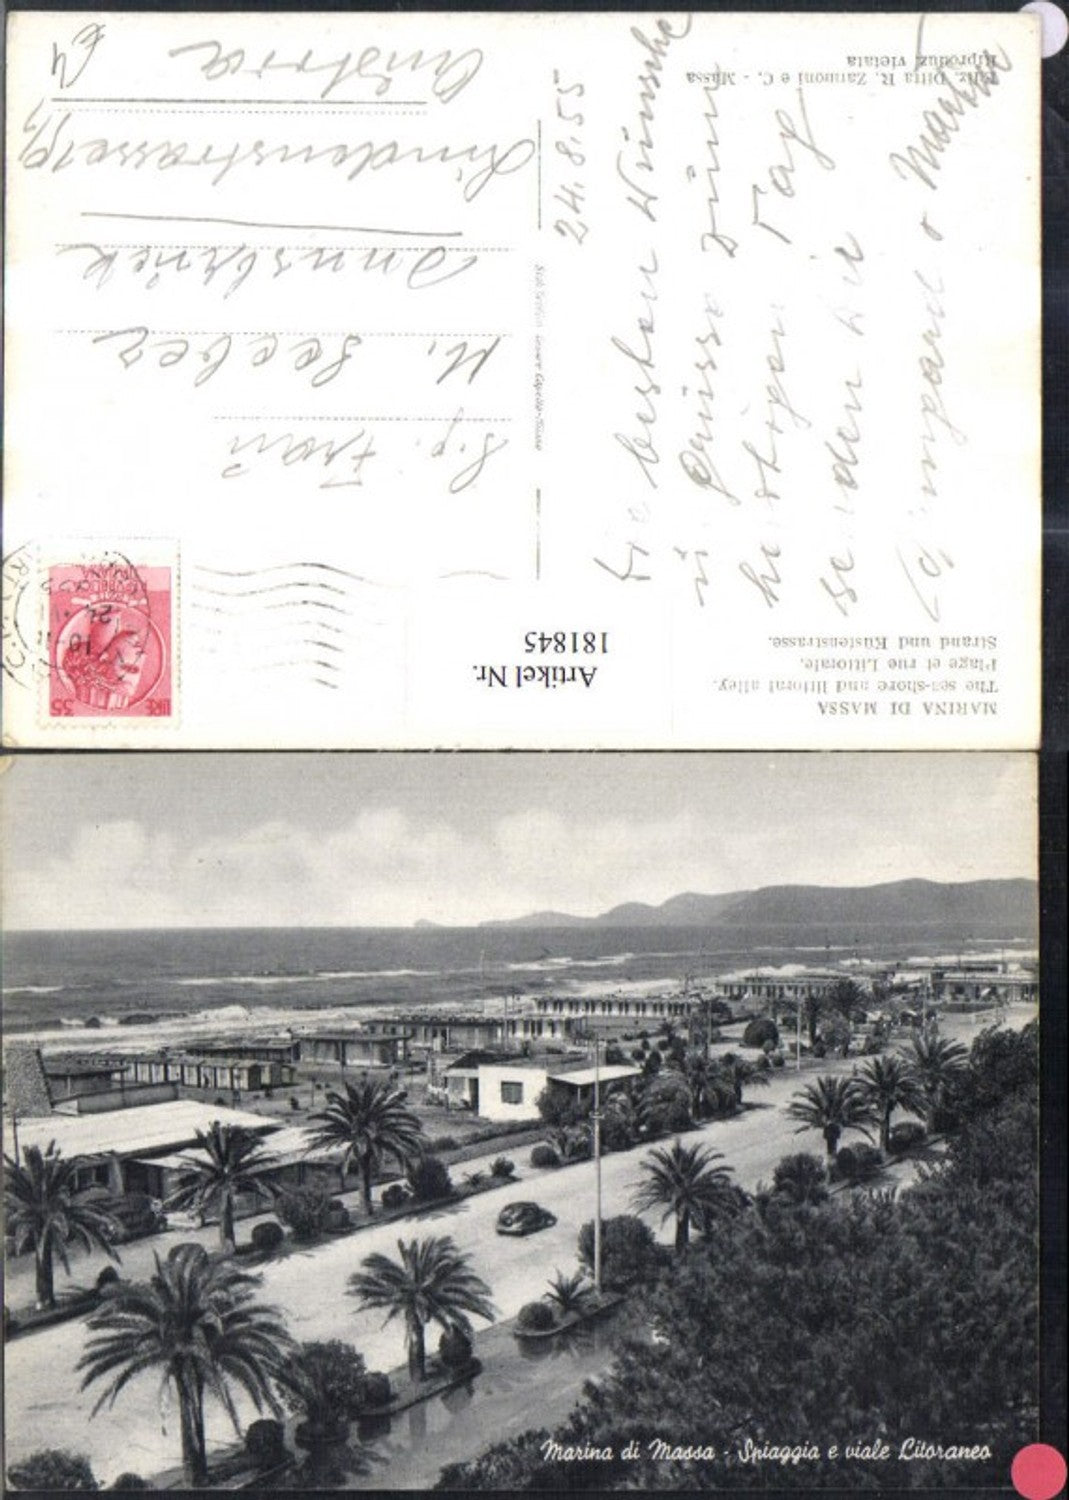 MARINA DI MASSA
The sea-shore and littoral alley.
Plage et rue Littorale.
Strand und Küstenstrasse.
Artikel Nr.
181845
LIRE 35
24.8.55
Die besten Wünsche
u. Grüsse zum
heutigen Tag
senden wir
Sig. Frau
M. Seeber
Innsbruck
Lindenstrasse 19
Austria
Ediz. Ditta R. Zannoni e C. - Massa
Riproduz. vietata
Marina di Massa - Spiaggia e viale Litoraneo